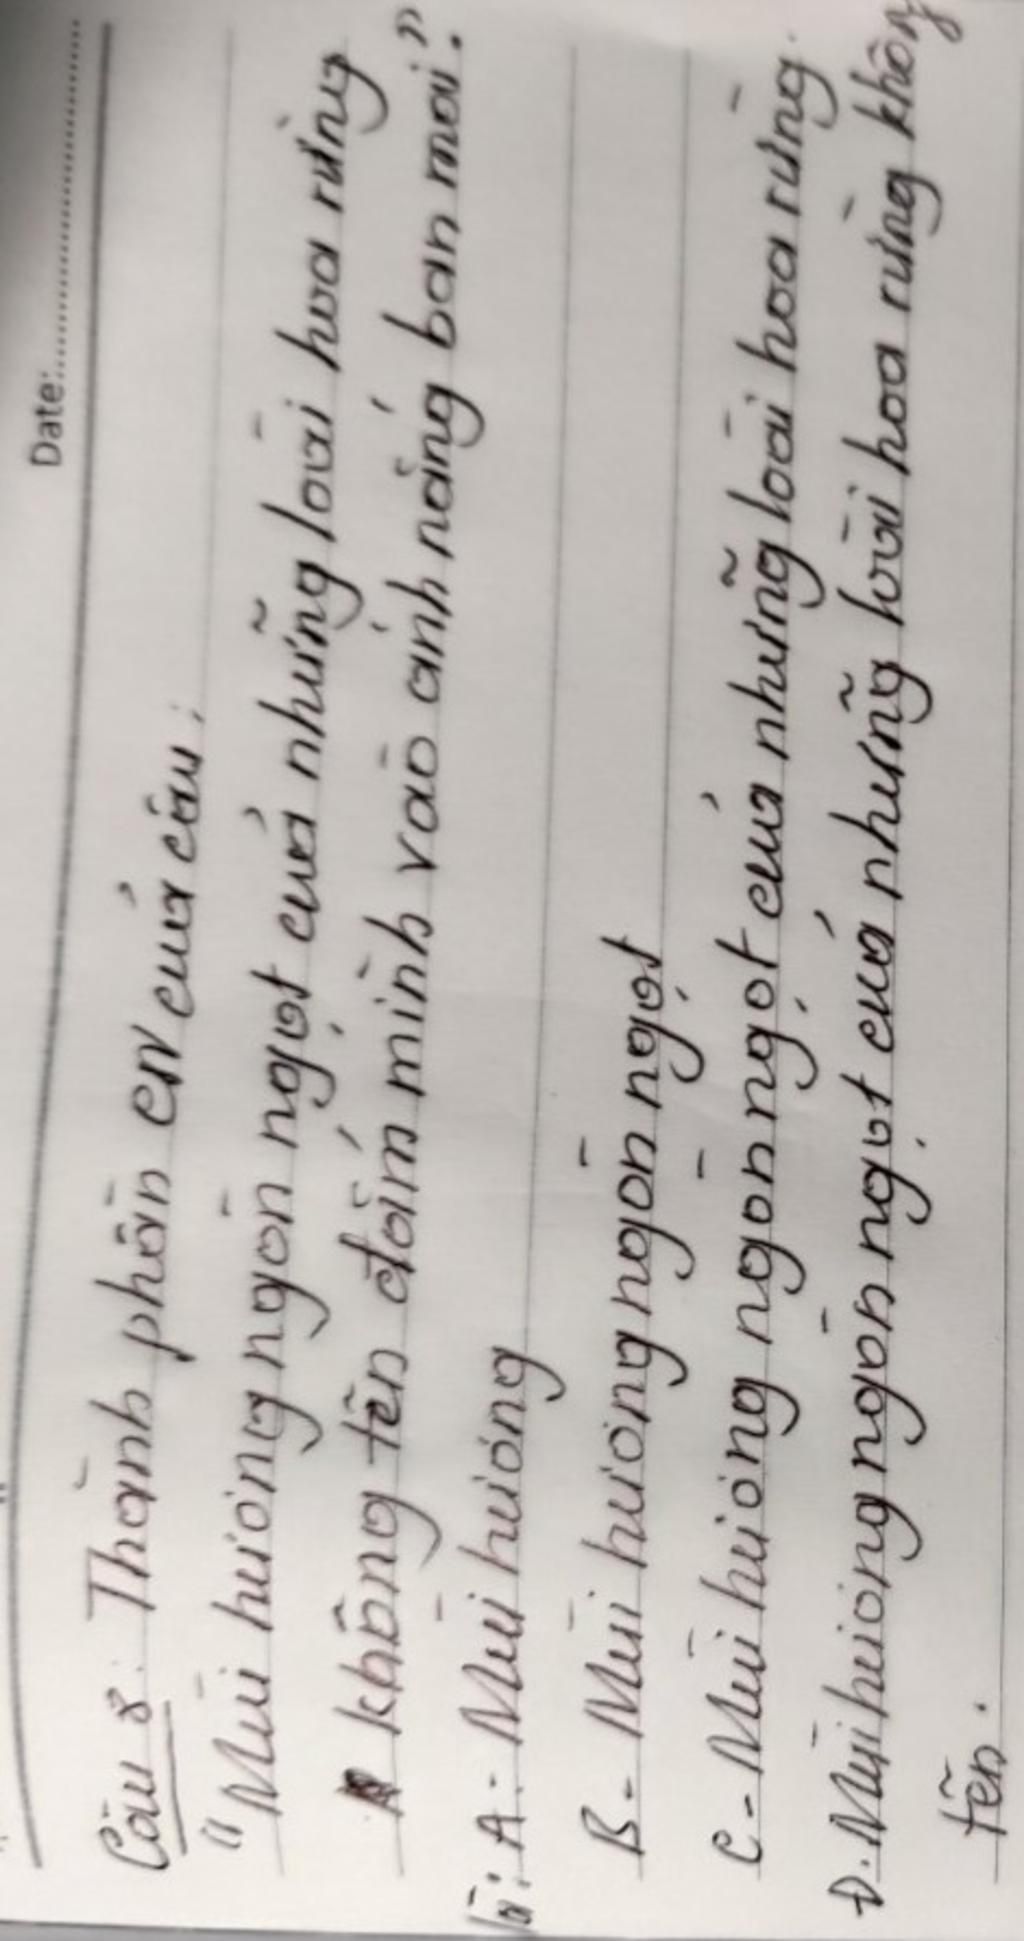 Date:
Câu 8: Thành phần CN của câu:
"Mùi hương ngòn ngọt của những loài hoa rừng
không tên đắm mình vào ánh nắng ban mai."
là: A- Mùi hương
B- Mùi hương ngòn ngọt
C- Mùi hương ngòn ngọt của những loài hoa rừng.
D. Mùi hương ngòn ngọt của những loài hoa rừng không
tên.